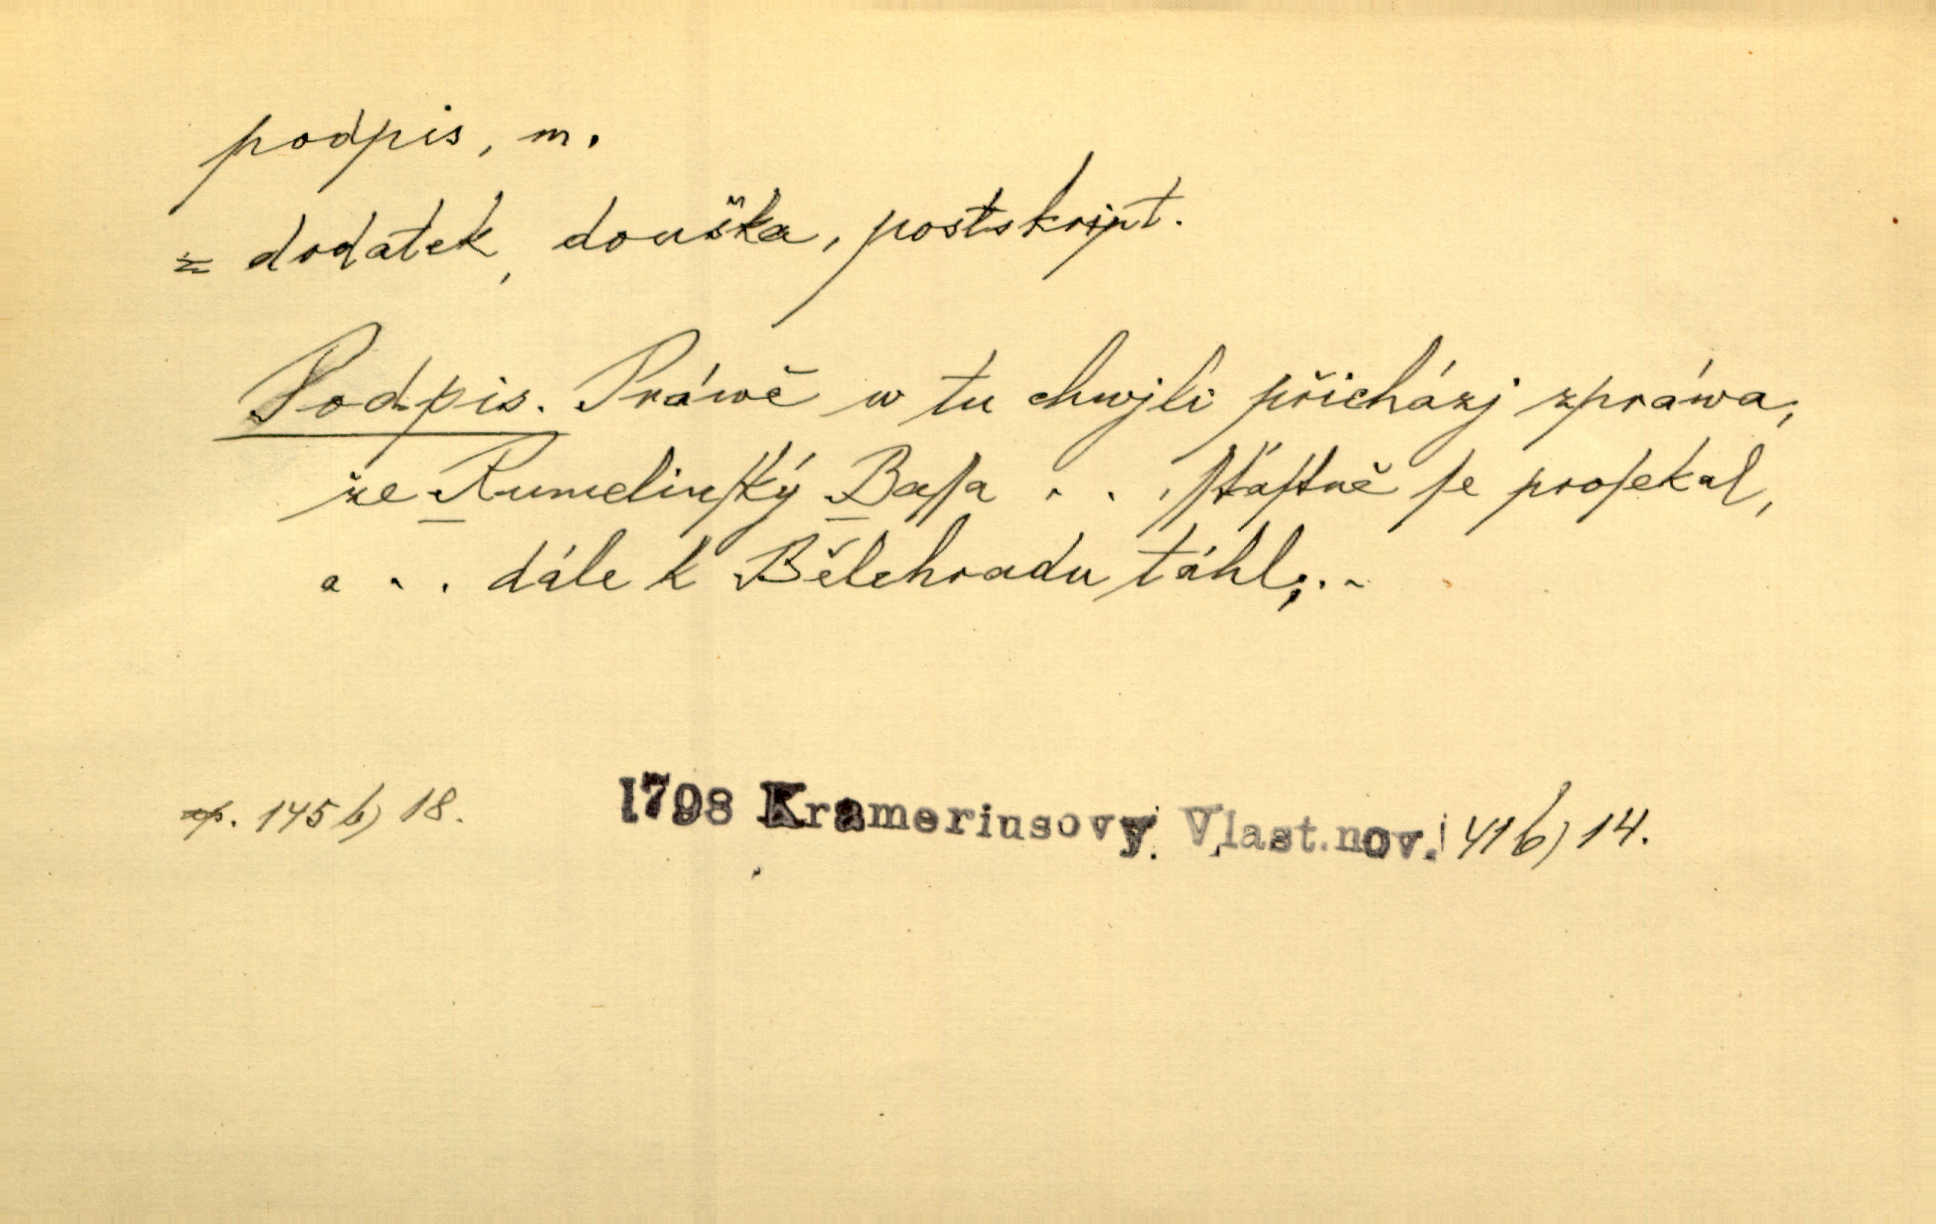 podpis, m.
= dodatek, douška, postskript.
Podpis. Práwě w tu chwjli přicházj zpráwa,
že Rumelinſký Baſſa . . . ſſťáſtně ſe proſekal,
a . . . dále k Bělehradu táhl; . .
145 b) 18. 1798 Krameriusovy Vlast.nov. 41 b) 14.